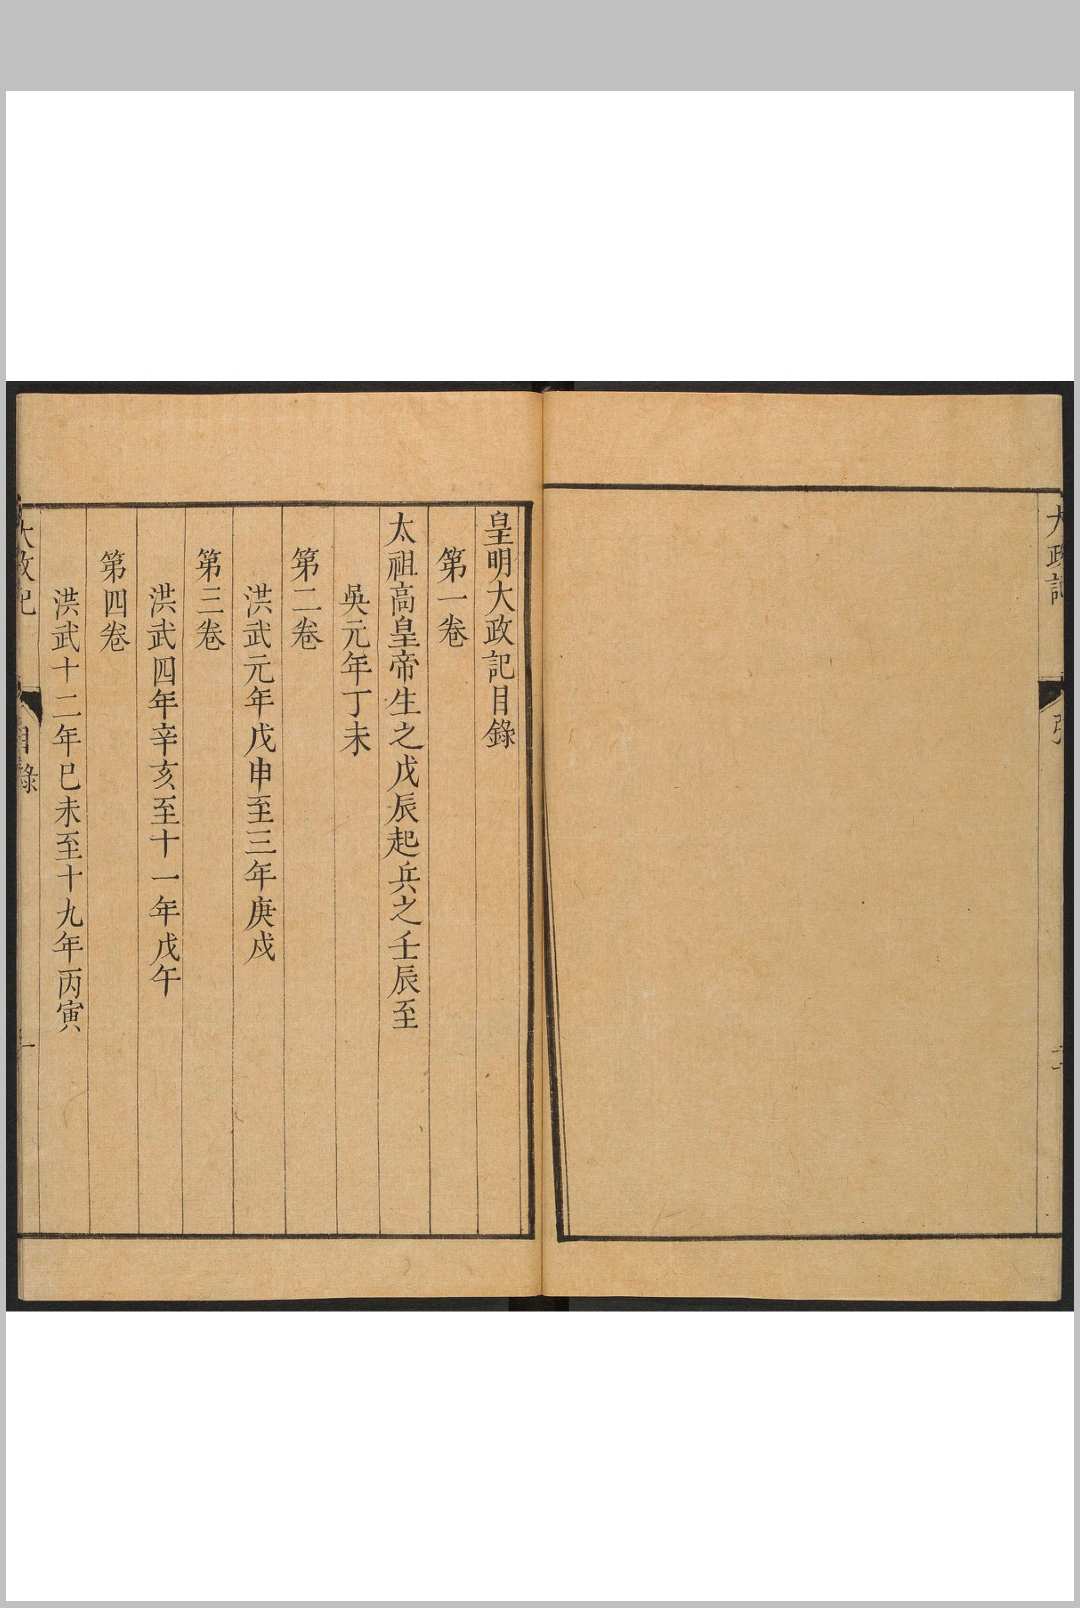 大政記
皇明大政記目錄
第一卷
太祖高皇帝生之戊辰起兵之壬辰至
吳元年丁未
第二卷
洪武元年戊申至三年庚戌
第三卷
洪武四年辛亥至十一年戊午
第四卷
洪武十二年巳未至十九年丙寅
大政記
目錄
一